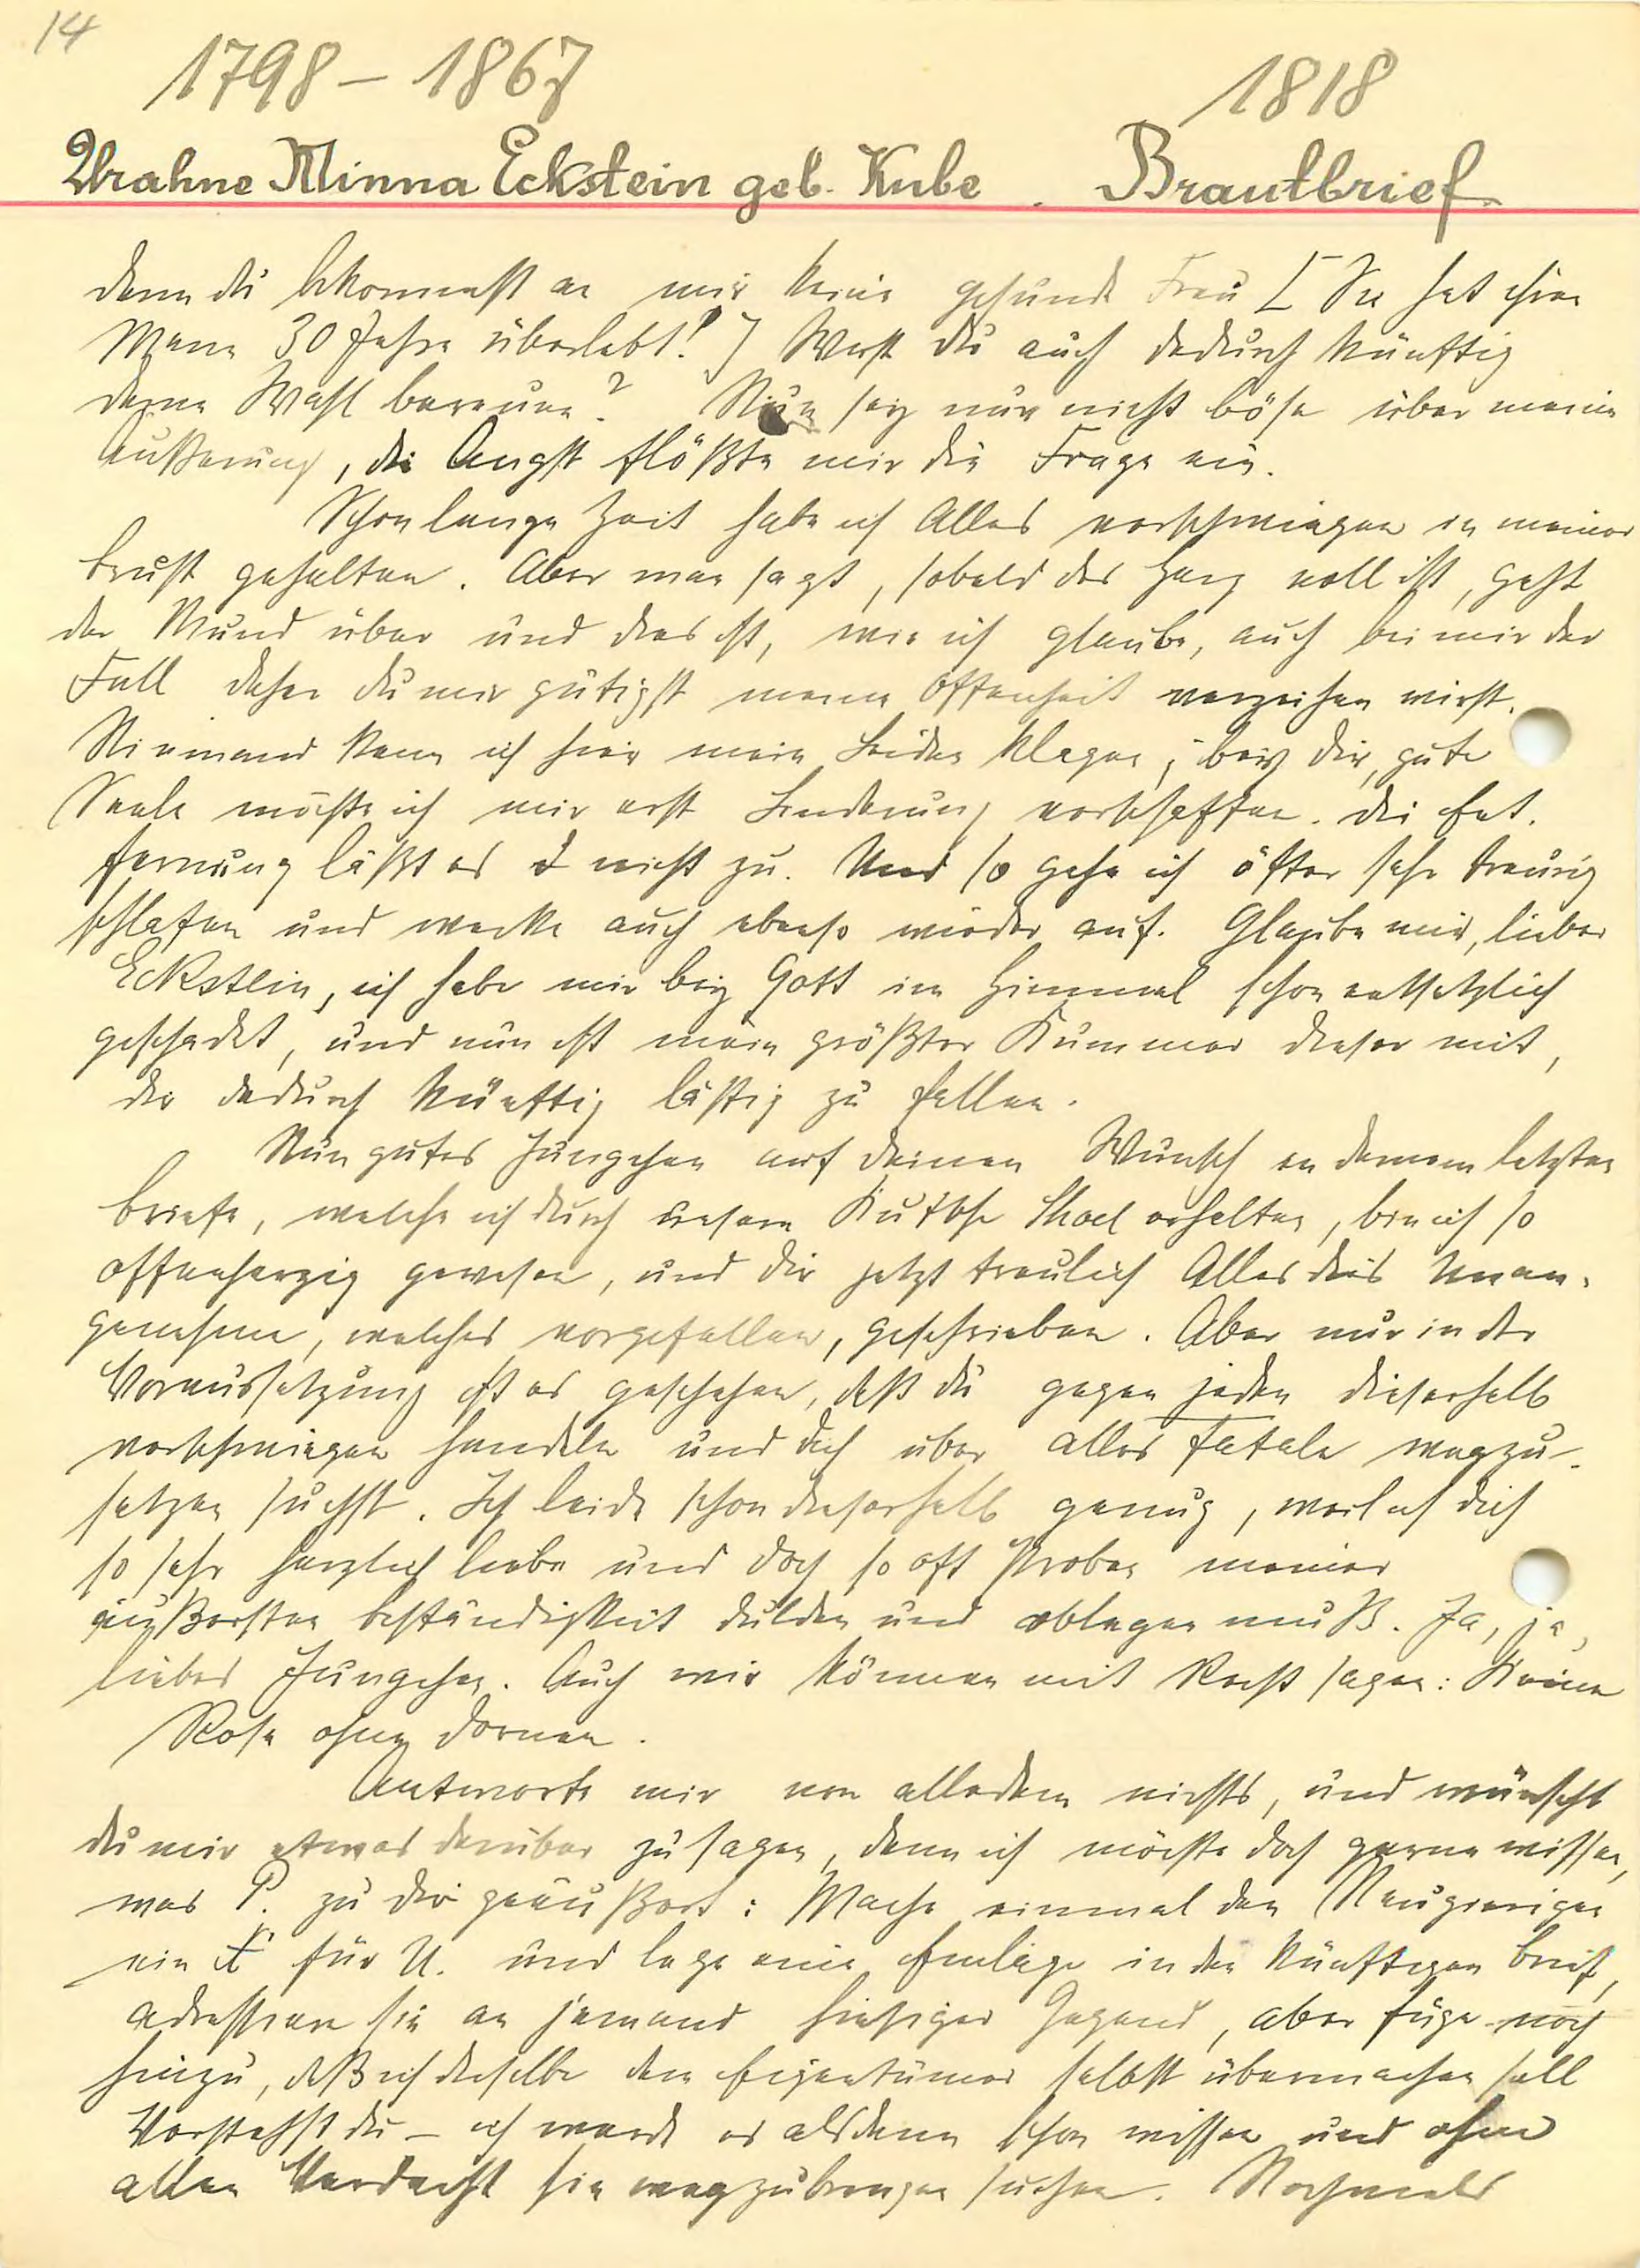 14
1798 – 1867
1818
Urahne Minna Eckstein geb. Kube . Brautbrief
denn du bekommst an mir keine gesunde Frau [Sie hat ihren
Mann 30 Jahre überlebt!] Wirst du auch dadurch künftig
deine Wahl bereuen? Nun sey nur nicht böse über meine
Äußerung, die Angst flößte mir die Frage ein.
Schon lange Zeit habe ich Alles verschwiegen in meiner
Brust gehalten. Aber man sagt, sobald das Herz voll ist, geht
der Mund über und dies ist, wie ich glaube, auch bei mir der
Fall daher du mir gütigst meine Offenheit verzeihen wirst.
Niemand kann ich hier mein Leiden klagen; bey dir, gute
Seele möchte ich mir erst Linderung verschaffen. die Ent-
fernung läßt es nicht zu. Und so gehe ich öfter sehr traurig
schlafen und wache auch ebenso wieder auf. Glaube mir, lieber
Eckstein, ich habe mir bey Gott im Himmel schon entsetzlich
geschadet, und nun ist mein größter Kummer dieser mit,
dir dadurch künftig lästig zu fallen.
Nun gutes Jungchen auf deinen Wunsch in deinem letzten
Briefe, welche ich durch unsern erhalten, bin ich so
offenherzig gewesen, und dir jetzt traulich Alles dies Unan-
genehme, welches vorgefallen, geschrieben. Aber nur in der
Voraussetzung ist es geschehen, daß du gegen jeden dieserhalb
verschwiegen handeln und dich über alles Fatale wegzu-
setzen suchst. Ich leide schon dieserhalb genug, weil ich dich
so sehr herzlich liebe und doch so oft Proben meiner
äußersten Beständigkeit dulden und ablegen muß. Ja, ja,
liebes Jungchen. Auch wir können mit Recht sagen: Keine
Rose ohne Dornen.
Antworte mir von alledem nichts, und wünscht
du mir etwas darüber zu sagen, denn ich möchte doch gerne wissen,
was P. zu dir geäußert: Mache einmal den Neugierigen
ein X für U. und lege eine Einlage in den künftigen Brief,
adressiere sie an jemand hiesiger Gegend, aber füge noch
hinzu, daß ich dieselbe dem Eigentümer selbst übermachen soll
Verstehst du – ich werde es alsdann schon wissen und ohne
allen Verdacht sie wegzubringen suchen. Nochmals